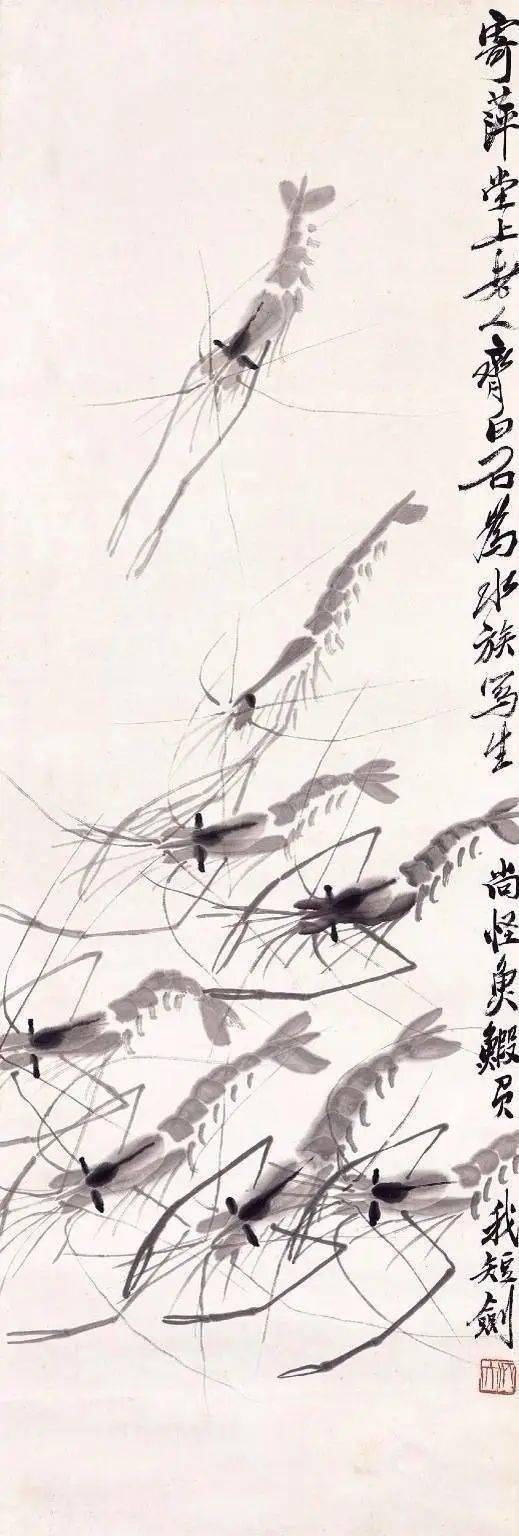 寄萍堂上老人齊白石為水族写生 尚怪魚鰕 我短劍